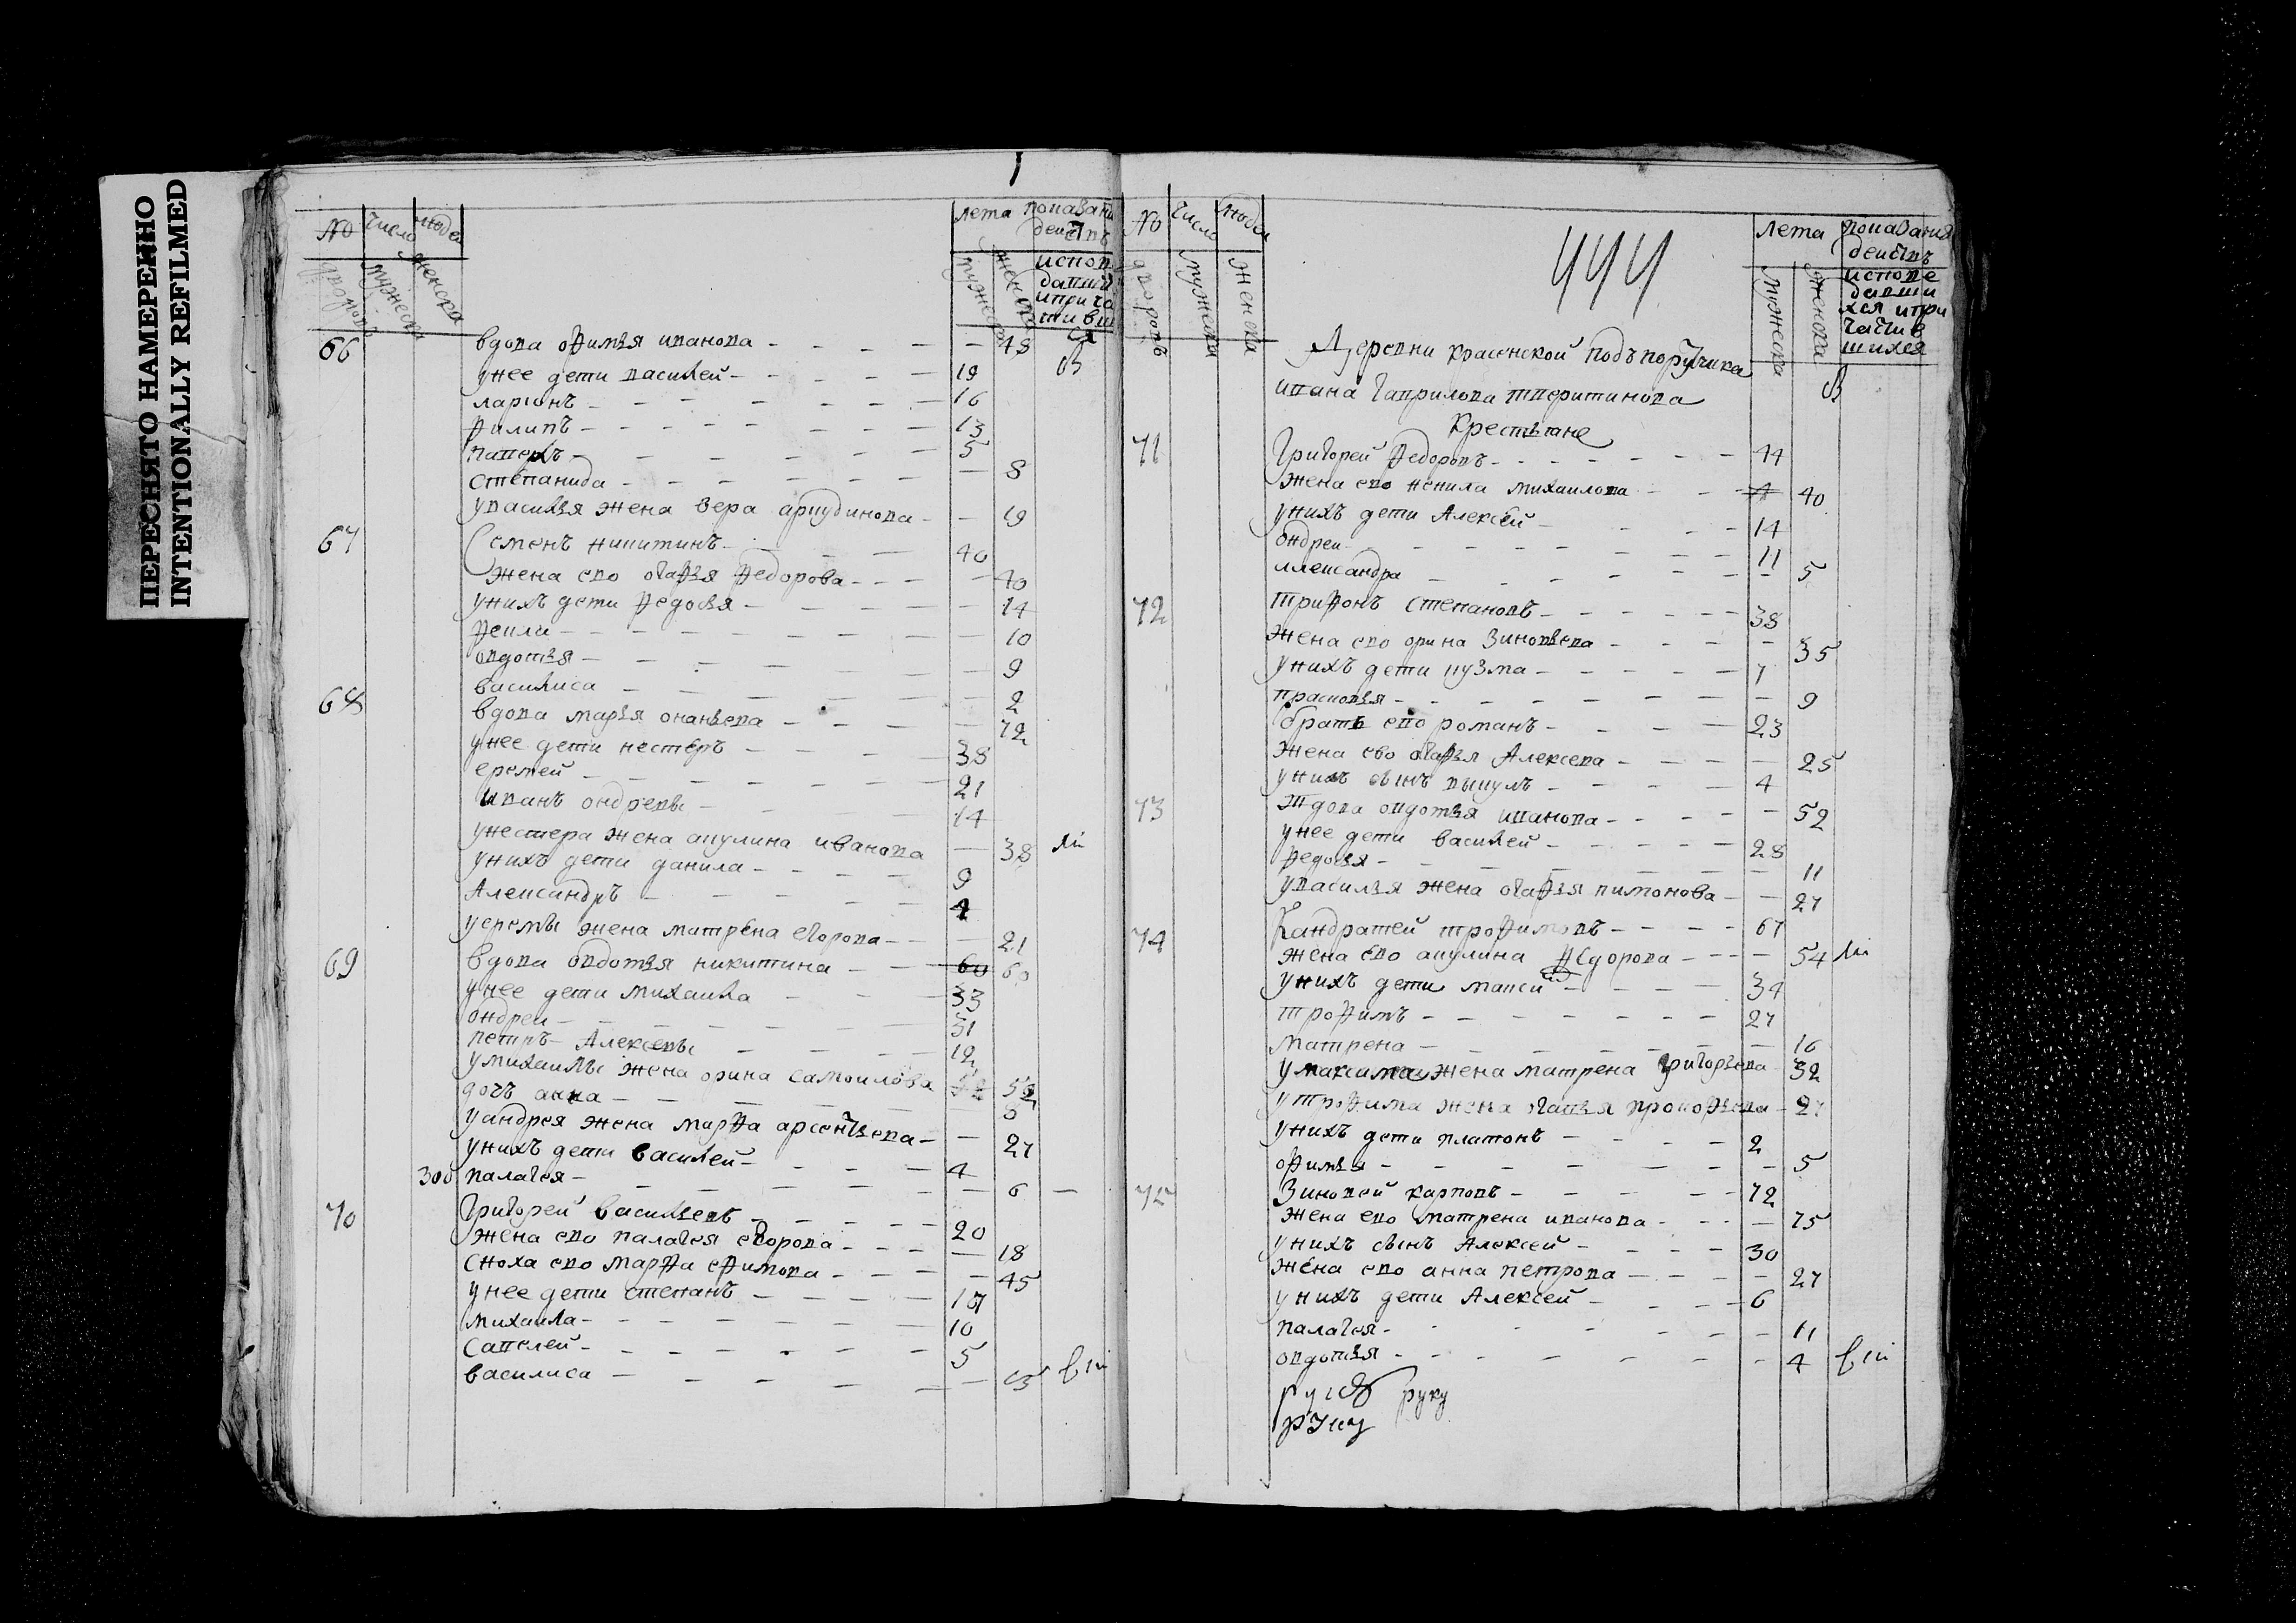 ПЕРЕСНЯТО НАМЕРЕННО
INTENTIONALLY REFILMED
No число людей
дворовъ мужеска женска
лета показани действъ
мужеска женска исповедавши и причастивши ся
66 вдова офимья иванова - 48
у нее дети василей - 19
ларионъ - 16
филипъ - 13
5
степанида - 8
у василья жена вера - 19
67 Семенъ никитинъ - 40
жена ево огафья федорова - 40
у нихъ дети федосья - 14
фекла - 10
овдотья - 9
василиса - 2
68 вдова марья онаньева - 72
у нее дети нестеръ - 38
еремей - 21
иванъ ондревы - 14
у нестера жена акулина иванова - 38
у нихъ дети данила - 9
Александръ - 4
у еремы жена матрена егорова - 21
69 вдова овдотья никитина - 60 60
у нее дети михаила - 33
ондреи - 31
петръ Алексевы - 12
у михаилы жена орина самоилова 52
дочь анна - 5
у андрея жена марфа арсентьева - 27
у нихъ дети василей - 4
300 палагея - 6
70 Григорей васильевъ - 20
жена ево палагея егорова - 18
сноха ево марфа ефимова - 45
у нее дети степанъ - 17
михаила - 10
савелей - 5
василиса -
No число людей
дворовъ мужеска женска
444
лета показания действъ
мужеска женска исповедавшихся и причастившихся
Деревни красенской подъ поручика
ивана гаврилова тверитинова
крестьяне
71 Григорей федоровъ - 44
жена ево ненила михаилова - 40
у нихъ дети Алексей - 14
ондреи - 11
Александра - 5
72 трифонъ степановъ - 38
жена ево орина зиновьева - 35
у нихъ дети кузма - 7
прасковья - 9
братъ ево романъ - 23
жена ево огафья Алексева - 25
у нихъ сынъ викулъ - 4
73 вдова овдотья иванова - 52
у нее дети василей - 28
федосья - 11
у василья жена огафья пимонова - 27
74 Кандратей трофимовъ - 67
жена ево акулина федорова - 54
у нихъ дети максим - 34
трофимъ - 27
матрена - 16
у максима жена матрена григорьева 32
у трофима жена огафья прокофьева - 27
у нихъ дети платонъ - 2
офимья - 5
75 Зиновей карповъ - 72
жена ево матрена иванова - 75
у нихъ сынъ Алексей - 30
жена ево анна петрова - 27
у нихъ дети Алексей - 6
палагея - 11
овдотья - 4
руку